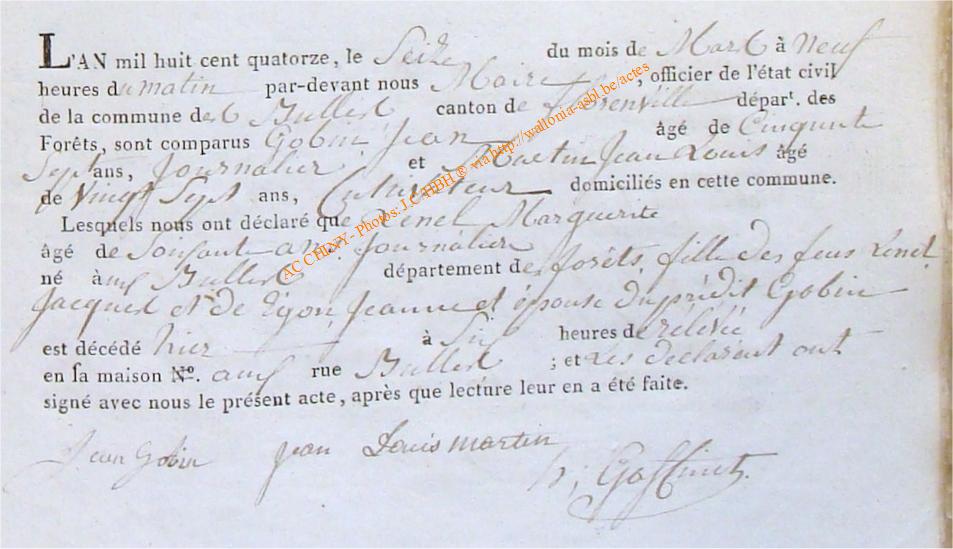 L'AN mil huit cent quatorze, le Seize du mois de Mars à Neuf
heures du matin par-devant nous Maire, officier de l'état civil
de la commune des Bulles, canton de florenville départ. des
Forêts, sont comparus Gobin Jean âgé de Cinquante
Sept ans, Journalier et Martin Jean Louis âgé
de Vingt Sept ans, Cultivateur domiciliés en cette commune.
Lesquels nous ont déclaré que Lenel Marguerite
âgé de Soixante ans Journalier
né à Bulles département des forêts, fille des feus Lenel
Jacques et de Egon Jeanne et épouse du prédit Gobin
est décédé hier à Six heures de relevée
en sa maison N°. rue Bulles ; et Les declarent ont
signé avec nous le présent acte, après que lecture leur en a été faite.
Jean Gobin jean Louis martin
h; Goffinet.
AC CHINY - Photos: J.C HBH ® via http://wallonia-asbl.be/actes